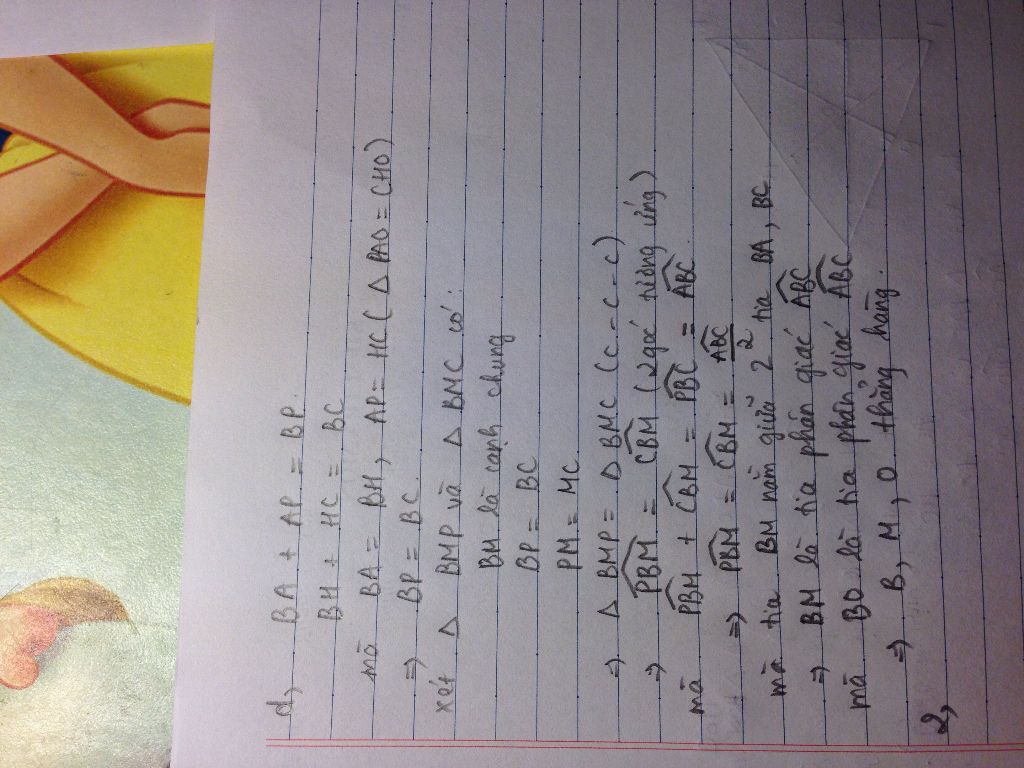 d, BA + AP = BP.
BH + HC = BC
mà BA = BH, AP = HC (Δ PAO = CHO)
=> BP = BC.
xét Δ BMP và Δ BMC có:
BM là cạnh chung
BP = BC
PM = MC
=> Δ BMP = Δ BMC (C-C-C)
=> \widehat{PBM} = \widehat{CBM} (2 góc tương ứng)
mà \widehat{PBM} + \widehat{CBM} = \widehat{PBC} = \widehat{ABC}
=> \widehat{PBM} = \widehat{CBM} = \frac{\widehat{ABC}}{2}
mà tia BM nằm giữa 2 tia BA, BC
=> BM là tia phân giác \widehat{ABC}
mà BO là tia phân giác \widehat{ABC}
=> B, M, O thẳng hàng.
2,